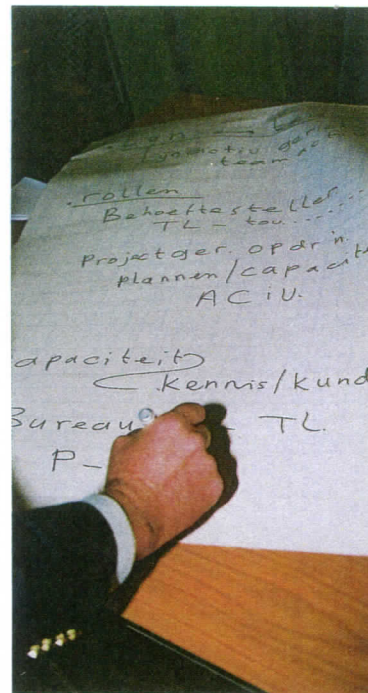 team
.rollen
Behoeftesteller
TL - tov.....
Projectger. opdr'n.
plannen/capacite
ACiU.
apaciteit
kennis/kund
Bureau - TL.
P-